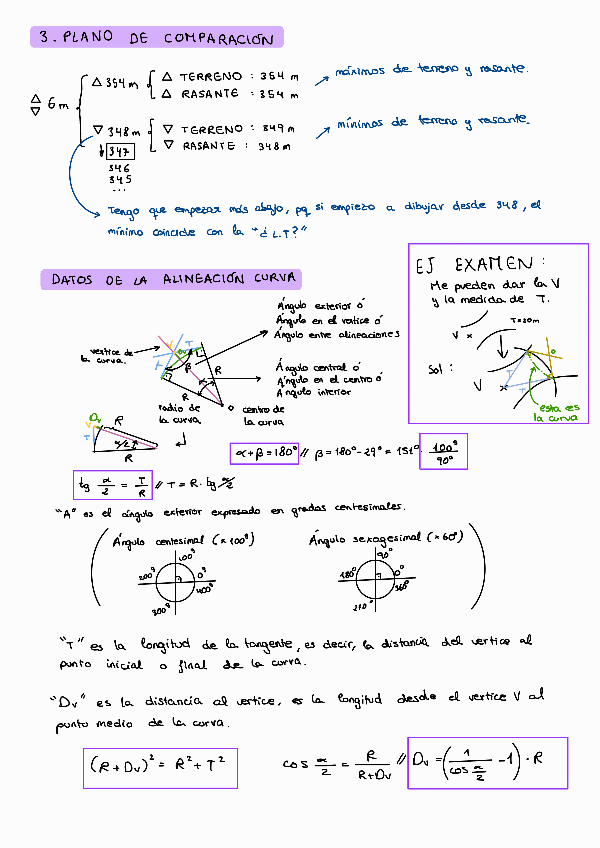 3. PLANO DE COMPARACIÓN
△ TERRENO : 354 m
△ RASANTE : 354 m
△ 354 m
máximos de terreno y rasante.
△ ▽ 6 m
▽ 348 m
▽ TERRENO : 349 m
▽ RASANTE : 348 m
mínimos de terreno y rasante.
↓ 347
346
345
...
Tengo que empezar más abajo, pq si empiezo a dibujar desde 348, el
mínimo coincide con la "¿L.T?"
DATOS DE LA ALINEACIÓN CURVA
EJ EXAMEN:
Me pueden dar la V
y la medida de T.
T=20m
V x
Sol:
V
T
T
esta es
la curva
Ángulo exterior ó
Ángulo en el vertice ó
Ángulo entre alineaciones
vertice de
la curva.
V
Dv
T
T
β
R
α
R
Ángulo central ó
Ángulo en el centro ó
Ángulo interior
radio de
la curva
centro de
la curva
Dv
V
R
T
α/2
R
α+β=180° // β=180°-29°=151°· 100° / 90°
tg α/2 = T/R // T = R· tg α/2
"A" es el ángulo exterior expresado en gradas centesimales.
Ángulo centesimal (×100°)
Ángulo sexagesimal (×60°)
100°
200°
0°
400°
300°
90°
180°
0°
360°
270°
"T" es la longitud de la tangente, es decir, la distancia del vertice al
punto inicial o final de la curva.
"Dv" es la distancia al vertice, es la longitud desde el vertice V al
punto medio de la curva.
(R+Dv)² = R²+T²
cos α/2 = R/(R+Dv) // Dv = (1/cos α/2 - 1)· R